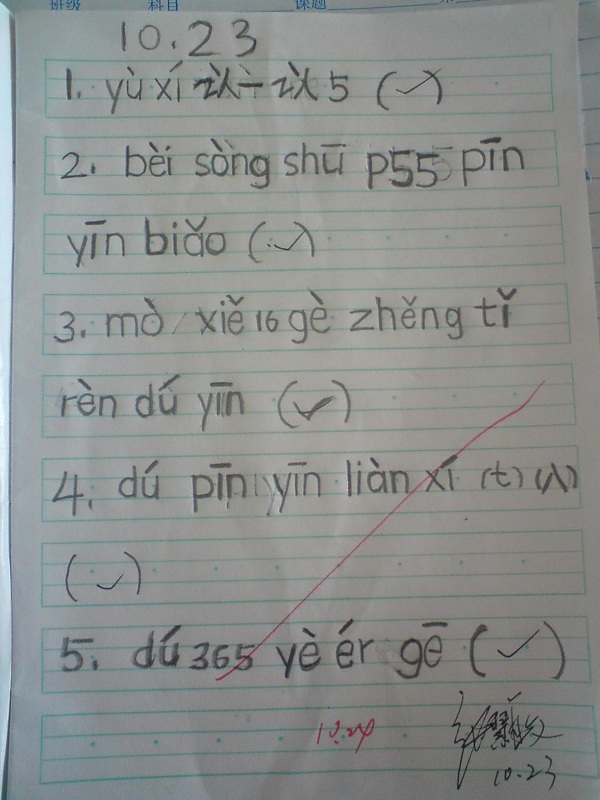 班级 科目 课题
10.23
1. yù xí 识一识 5 (✓)
2. bèi sòng shū p55 pīn
yīn biǎo (✓)
3. mò xiě 16 gè zhěng tǐ
rèn dú yīn (✓)
4. dú pīn yīn liàn xí (七) (八)
(✓)
5. dú 365 yè ér gē (✓)
10.24
10.23